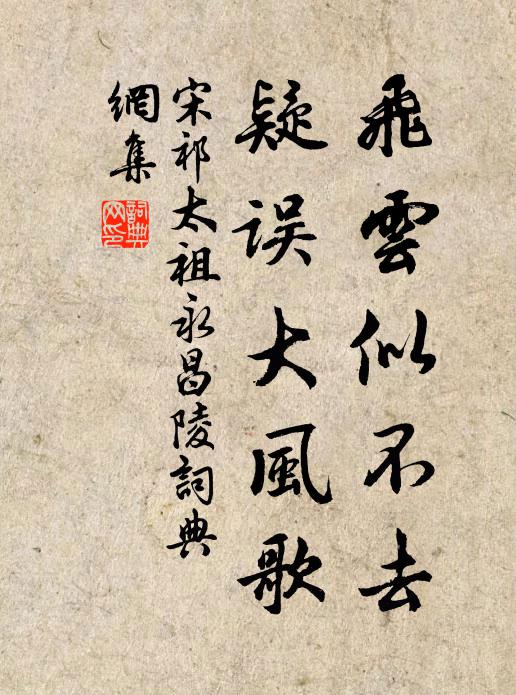 飛雲似不去
疑誤大風歌
宋祁太祖永昌陵詞典
網集
詞典
网印